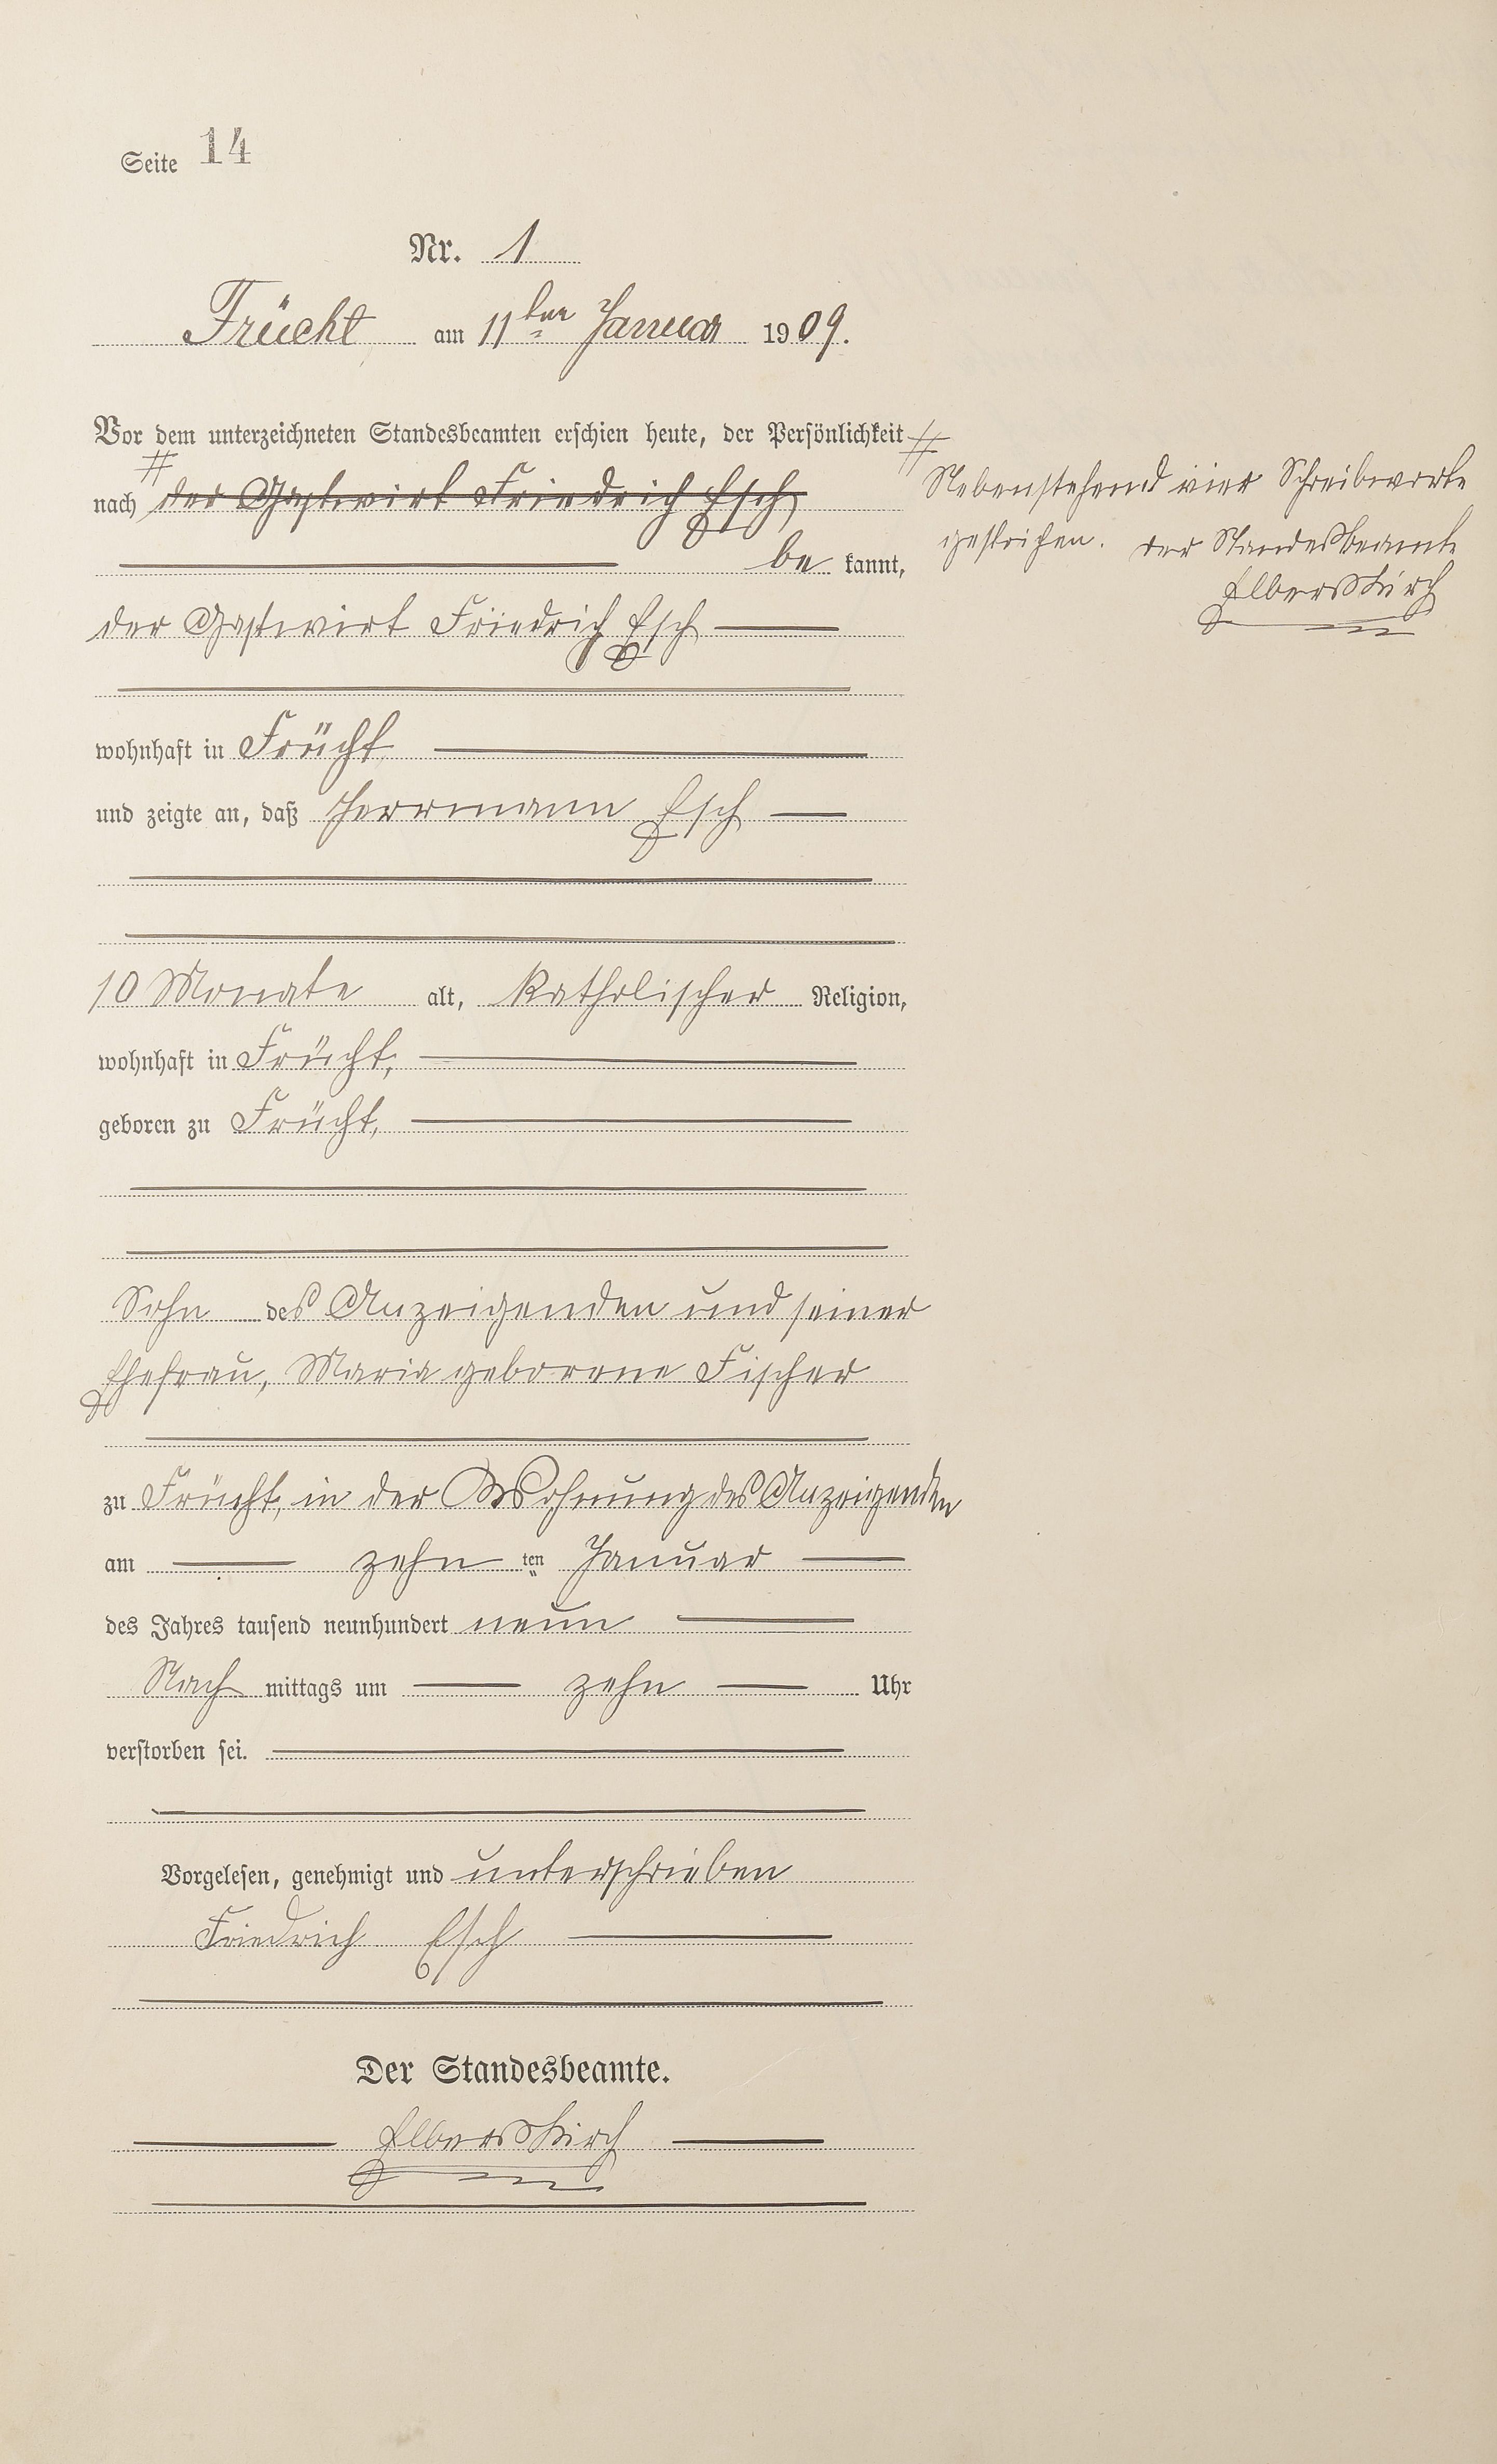 Seite 14
Nr. 1
Frücht am 11ten Januar 1909.
Vor dem unterzeichneten Standesbeamten erschien heute, der Persönlichkeit #
nach # der Gastwirt Friedrich Esch
be kannt,
Nebenstehend vier Schreibworte
gestrichen. Der Standesbeamte
Elberskirch
der Gastwirt Friedrich Esch
wohnhaft in Frücht
und zeigte an, daß Herrmann Esch
10 Monate alt, katholischer Religion,
wohnhaft in Frücht,
geboren zu Frücht,
Sohn des Anzeigenden und seiner
Ehefrau, Maria geborene Fischer
zu Frücht, in der Wohnung des Anzeigenden
am zehn ten Januar
des Jahres tausend neunhundert neun
Nach mittags um zehn Uhr
verstorben sei.
Vorgelesen, genehmigt und unterschrieben
Friedrich Esch
Der Standesbeamte.
Elberskirch